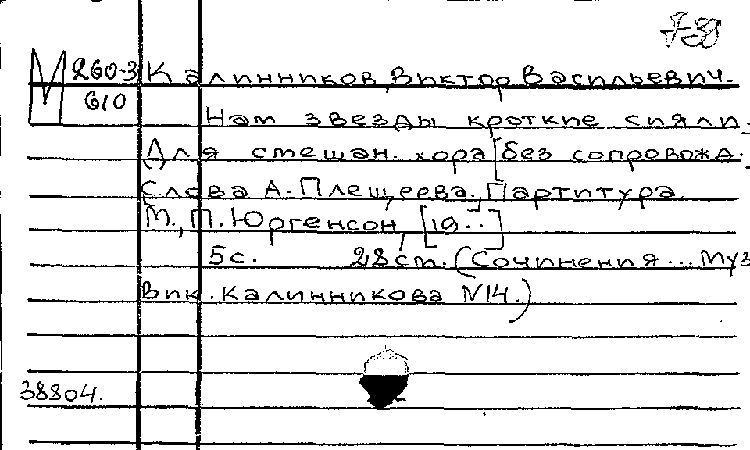 М 260-3 Калинников, Виктор Васильевич.
610
Нам звезды кроткие сияли.
Для смешан. хора [без сопровожд.
Слова А. Плещеева. Партитура.
М., П. Юргенсон, [19..]
5 с. 28 см. (Сочинения... Муз
Вик. Калинникова N14.)
38804.